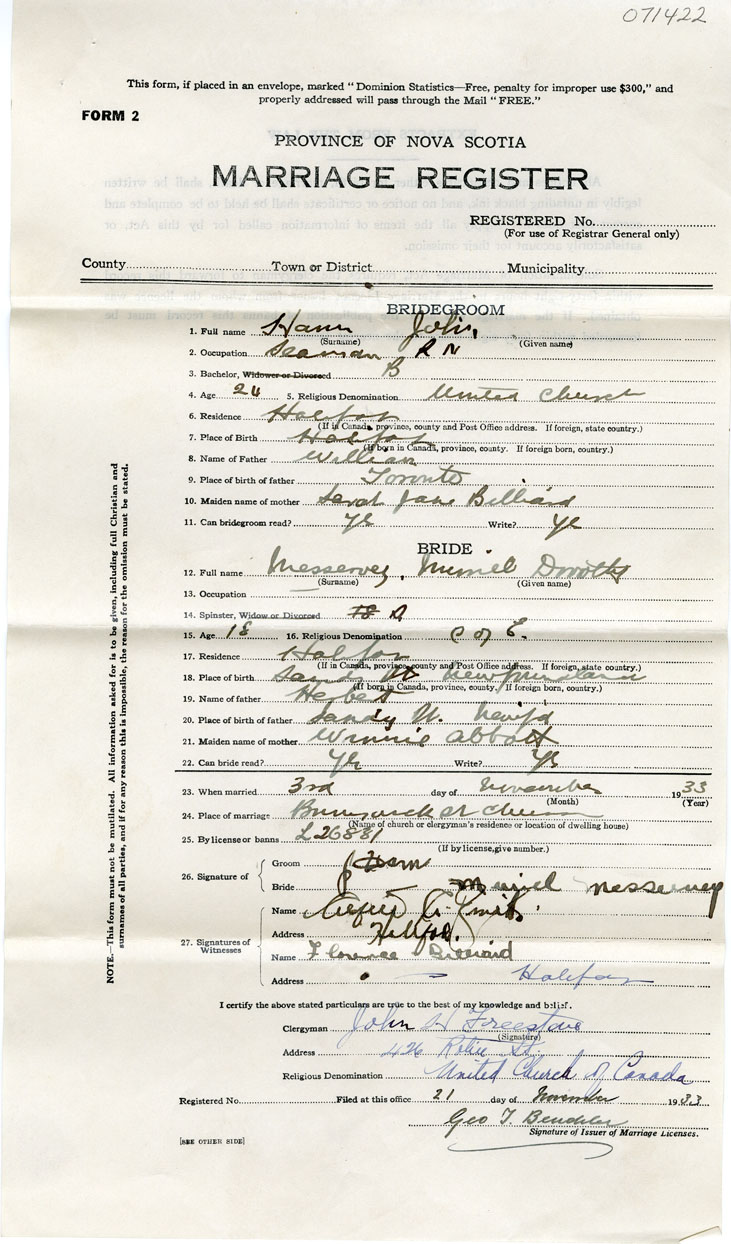 071422
This form, if placed in an envelope, marked "Dominion Statistics—Free, penalty for improper use $300," and
properly addressed will pass through the Mail "FREE."
FORM 2
PROVINCE OF NOVA SCOTIA
MARRIAGE REGISTER
REGISTERED No.
(For use of Registrar General only)
County Town or District Municipality
BRIDEGROOM
1. Full name Hann John
(Surname) (Given name)
2. Occupation Seaman R N
3. Bachelor, Widower or Divorced B
4. Age 24 5. Religious Denomination United Church
6. Residence Halifax
(If in Canada, province, county and Post Office address. If foreign, state country.)
7. Place of Birth Halifax
(If born in Canada, province, county. If foreign born, country.)
8. Name of Father William
9. Place of birth of father Toronto
10. Maiden name of mother Sarah Jane Billiard
11. Can bridegroom read? Yes Write? Yes
BRIDE
12. Full name Messervey, Muriel Dorothy
(Surname) (Given name)
13. Occupation
14. Spinster, Widow or Divorced
15. Age 18 16. Religious Denomination C of E.
17. Residence Halifax
(If in Canada, province, county and Post Office address. If foreign, state country.)
18. Place of birth Sandy Newfoundland
(If born in Canada, province, county. If foreign born, country.)
19. Name of father Herbert
20. Place of birth of father Sandy Newfd
21. Maiden name of mother Winnie Abbott
22. Can bride read? Yes Write? Yes
23. When married 3rd day of November 1933
(Month) (Year)
24. Place of marriage Brunswick St Church
(Name of church or clergyman's residence or location of dwelling house)
25. By license or banns L26881
(If by license, give number.)
26. Signature of
Groom J Hann
Bride Muriel Messervey
27. Signatures of Witnesses
Name Smith
Address Halifax.
Name Florence Billiard
Address Halifax
I certify the above stated particulars are true to the best of my knowledge and belief.
Clergyman John H Freestone
(Signature)
Address 426 Robie St.
Religious Denomination United Church of Canada
Registered No. Filed at this office 21 day of November 1933
Geo T
Signature of Issuer of Marriage Licenses.
[SEE OTHER SIDE]
NOTE.—This form must not be mutilated. All information asked for is to be given, including full Christian and
surnames of all parties, and if for any reason this is impossible, the reason for the omission must be stated.